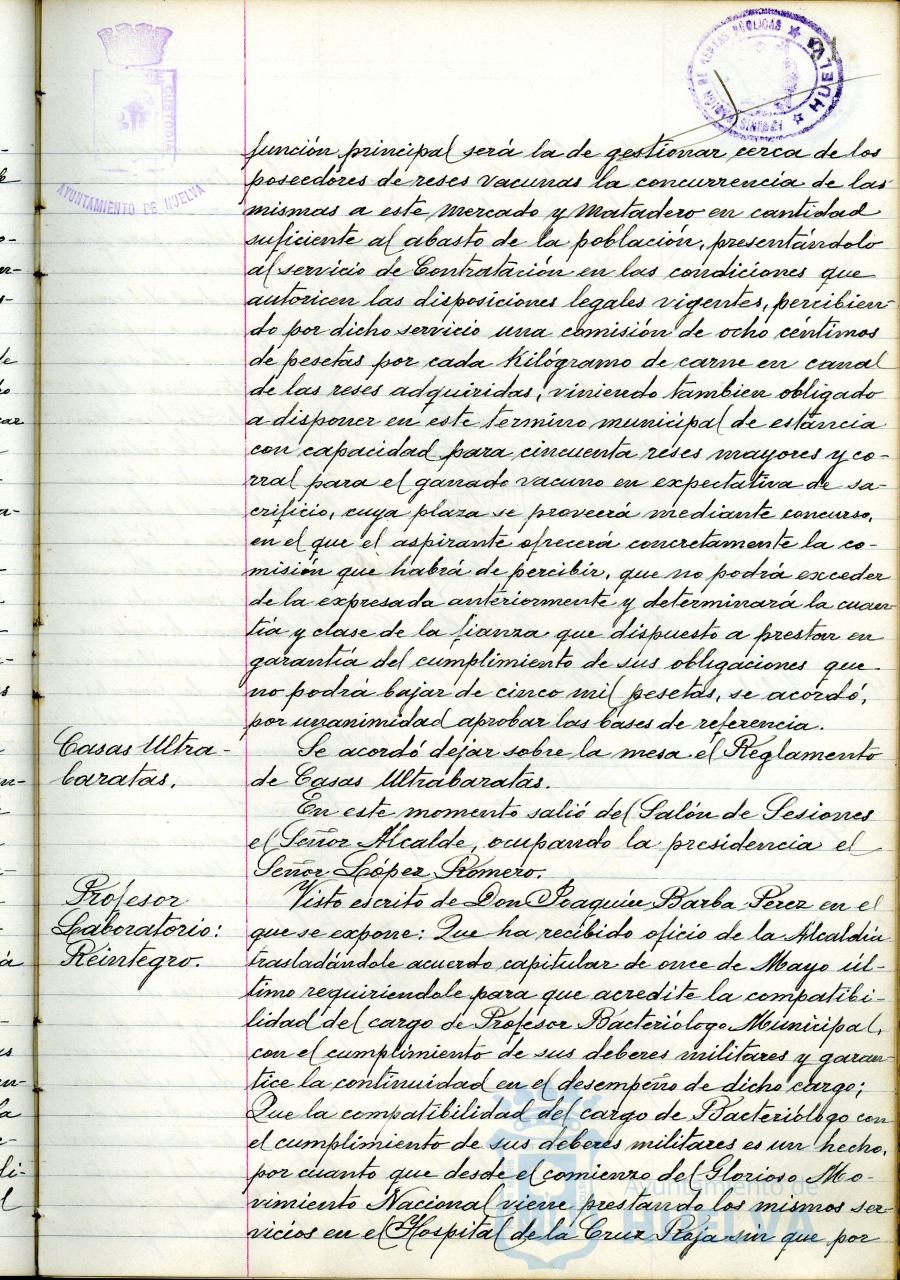 CUSTODIA
AYUNTAMIENTO DE HUELVA
HUELVA
función principal será la de gestionar cerca de los
poseedores de reses vacunas la concurrencia de las
mismas a este Mercado y Matadero en cantidad
suficiente al abasto de la población, presentándolo
al servicio de Contratación en las condiciones que
autoricen las disposiciones legales vigentes, percibien-
do por dicho servicio una comisión de ocho céntimos
de pesetas por cada Kilógramo de carne en canal
de las reses adquiridas, viniendo tambien obligado
a disponer en este termino municipal de estancia
con capacidad para cincuenta reses mayores y co-
rral para el ganado vacuno en expectativa de sa-
crificio, cuya plaza se proveerá mediante concurso,
en el que el aspirante ofrecerá concretamente la co-
misión que habrá de percibir, que no podrá exceder
de la expresada anteriormente y determinará la cuan-
tía y clase de la fianza que dispuesto a prestar en
garantía del cumplimiento de sus obligaciones que
no podrá bajar de cinco mil pesetas, se acordó,
por unanimidad aprobar las bases de referencia.
Casas Ultra-
baratas.
Se acordó dejar sobre la mesa el Reglamento
de Casas Ultrabaratas.
En este momento salió del Salón de Sesiones
el Señor Alcalde, ocupando la presidencia el
Señor López Romero.
Profesor
Laboratorio:
Reintegro.
Visto escrito de Don Joaquín Barba Perez en el
que se expone: Que ha recibido oficio de la Alcaldía
trasladándole acuerdo capitular de once de Mayo úl-
timo requiriendole para que acredite la compatibi-
lidad del cargo de Profesor Bacteriólogo Municipal,
con el cumplimiento de sus deberes militares y garan-
tice la continuidad en el desempeño de dicho cargo;
Que la compatibilidad del cargo de Bacteriólogo con
el cumplimiento de sus deberes militares es un hecho,
por cuanto que desde el comienzo del Glorioso Mo-
vimiento Nacional viene prestando los mismos ser-
vicios en el Hospital de la Cruz Roja sin que por
Ayuntamiento de
HUELVA